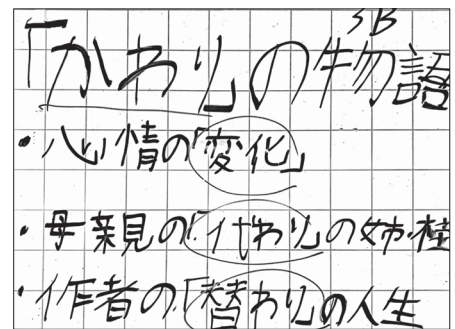 SB
「かわり」の物語
・心情の「変化」
・母親の「代わり」の姉・桂
・作者の「替わり」の人生